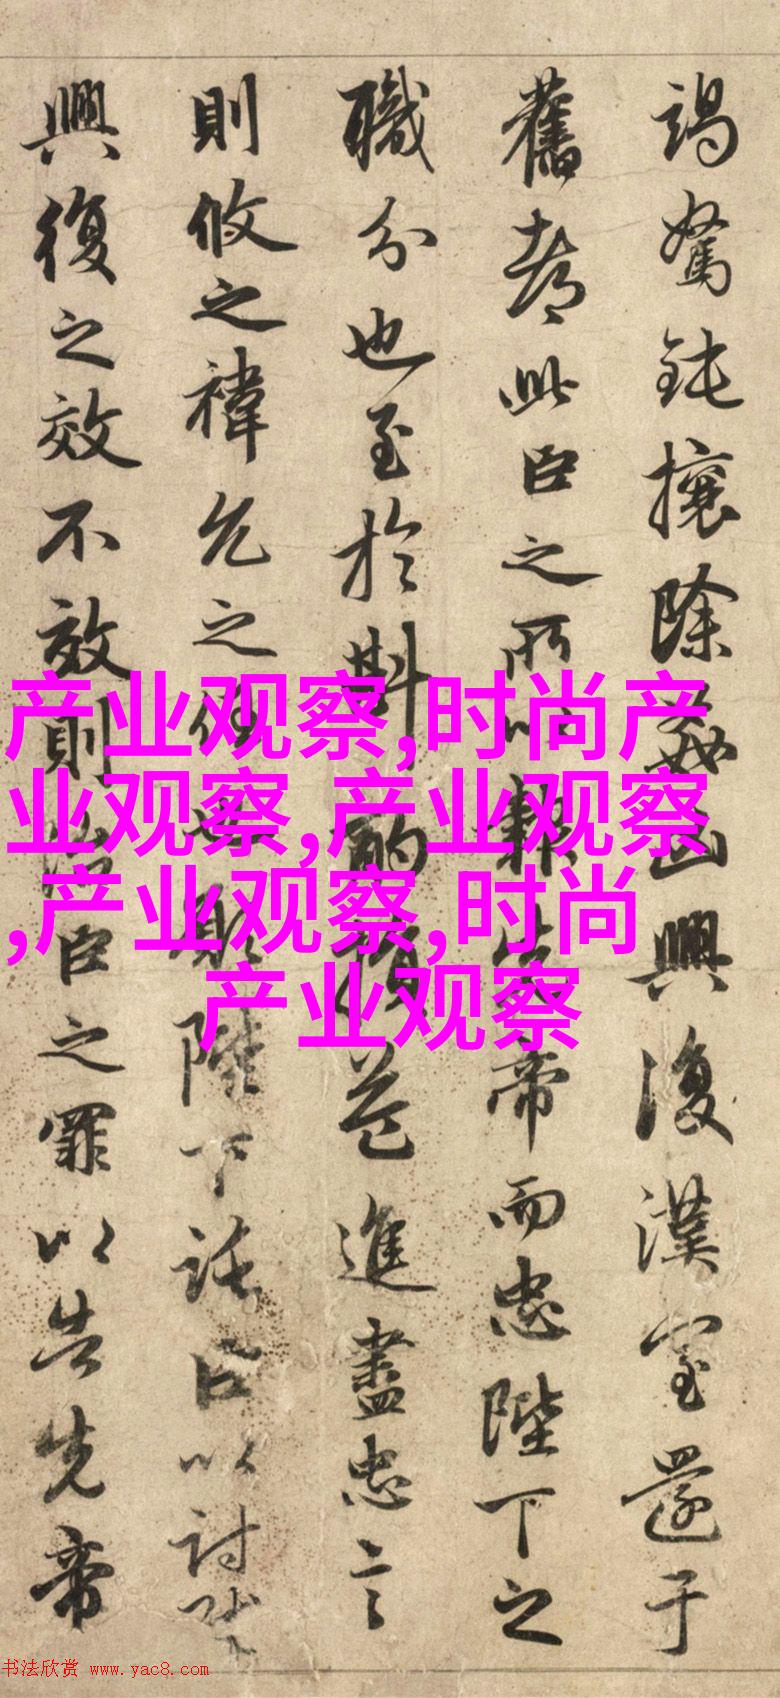 竭駑鈍攘除姦凶興復漢室還于
舊都此臣之所以報先帝而忠陛下之
職分也至於斟酌損益進盡忠言
則攸之禕允之任也願陛下託臣以討賊
興復之效不效則治臣之罪以告先帝
产业观察,时尚产
业观察,产业观察
,产业观察,时尚
产业观察
书法欣赏 www.yac8.com